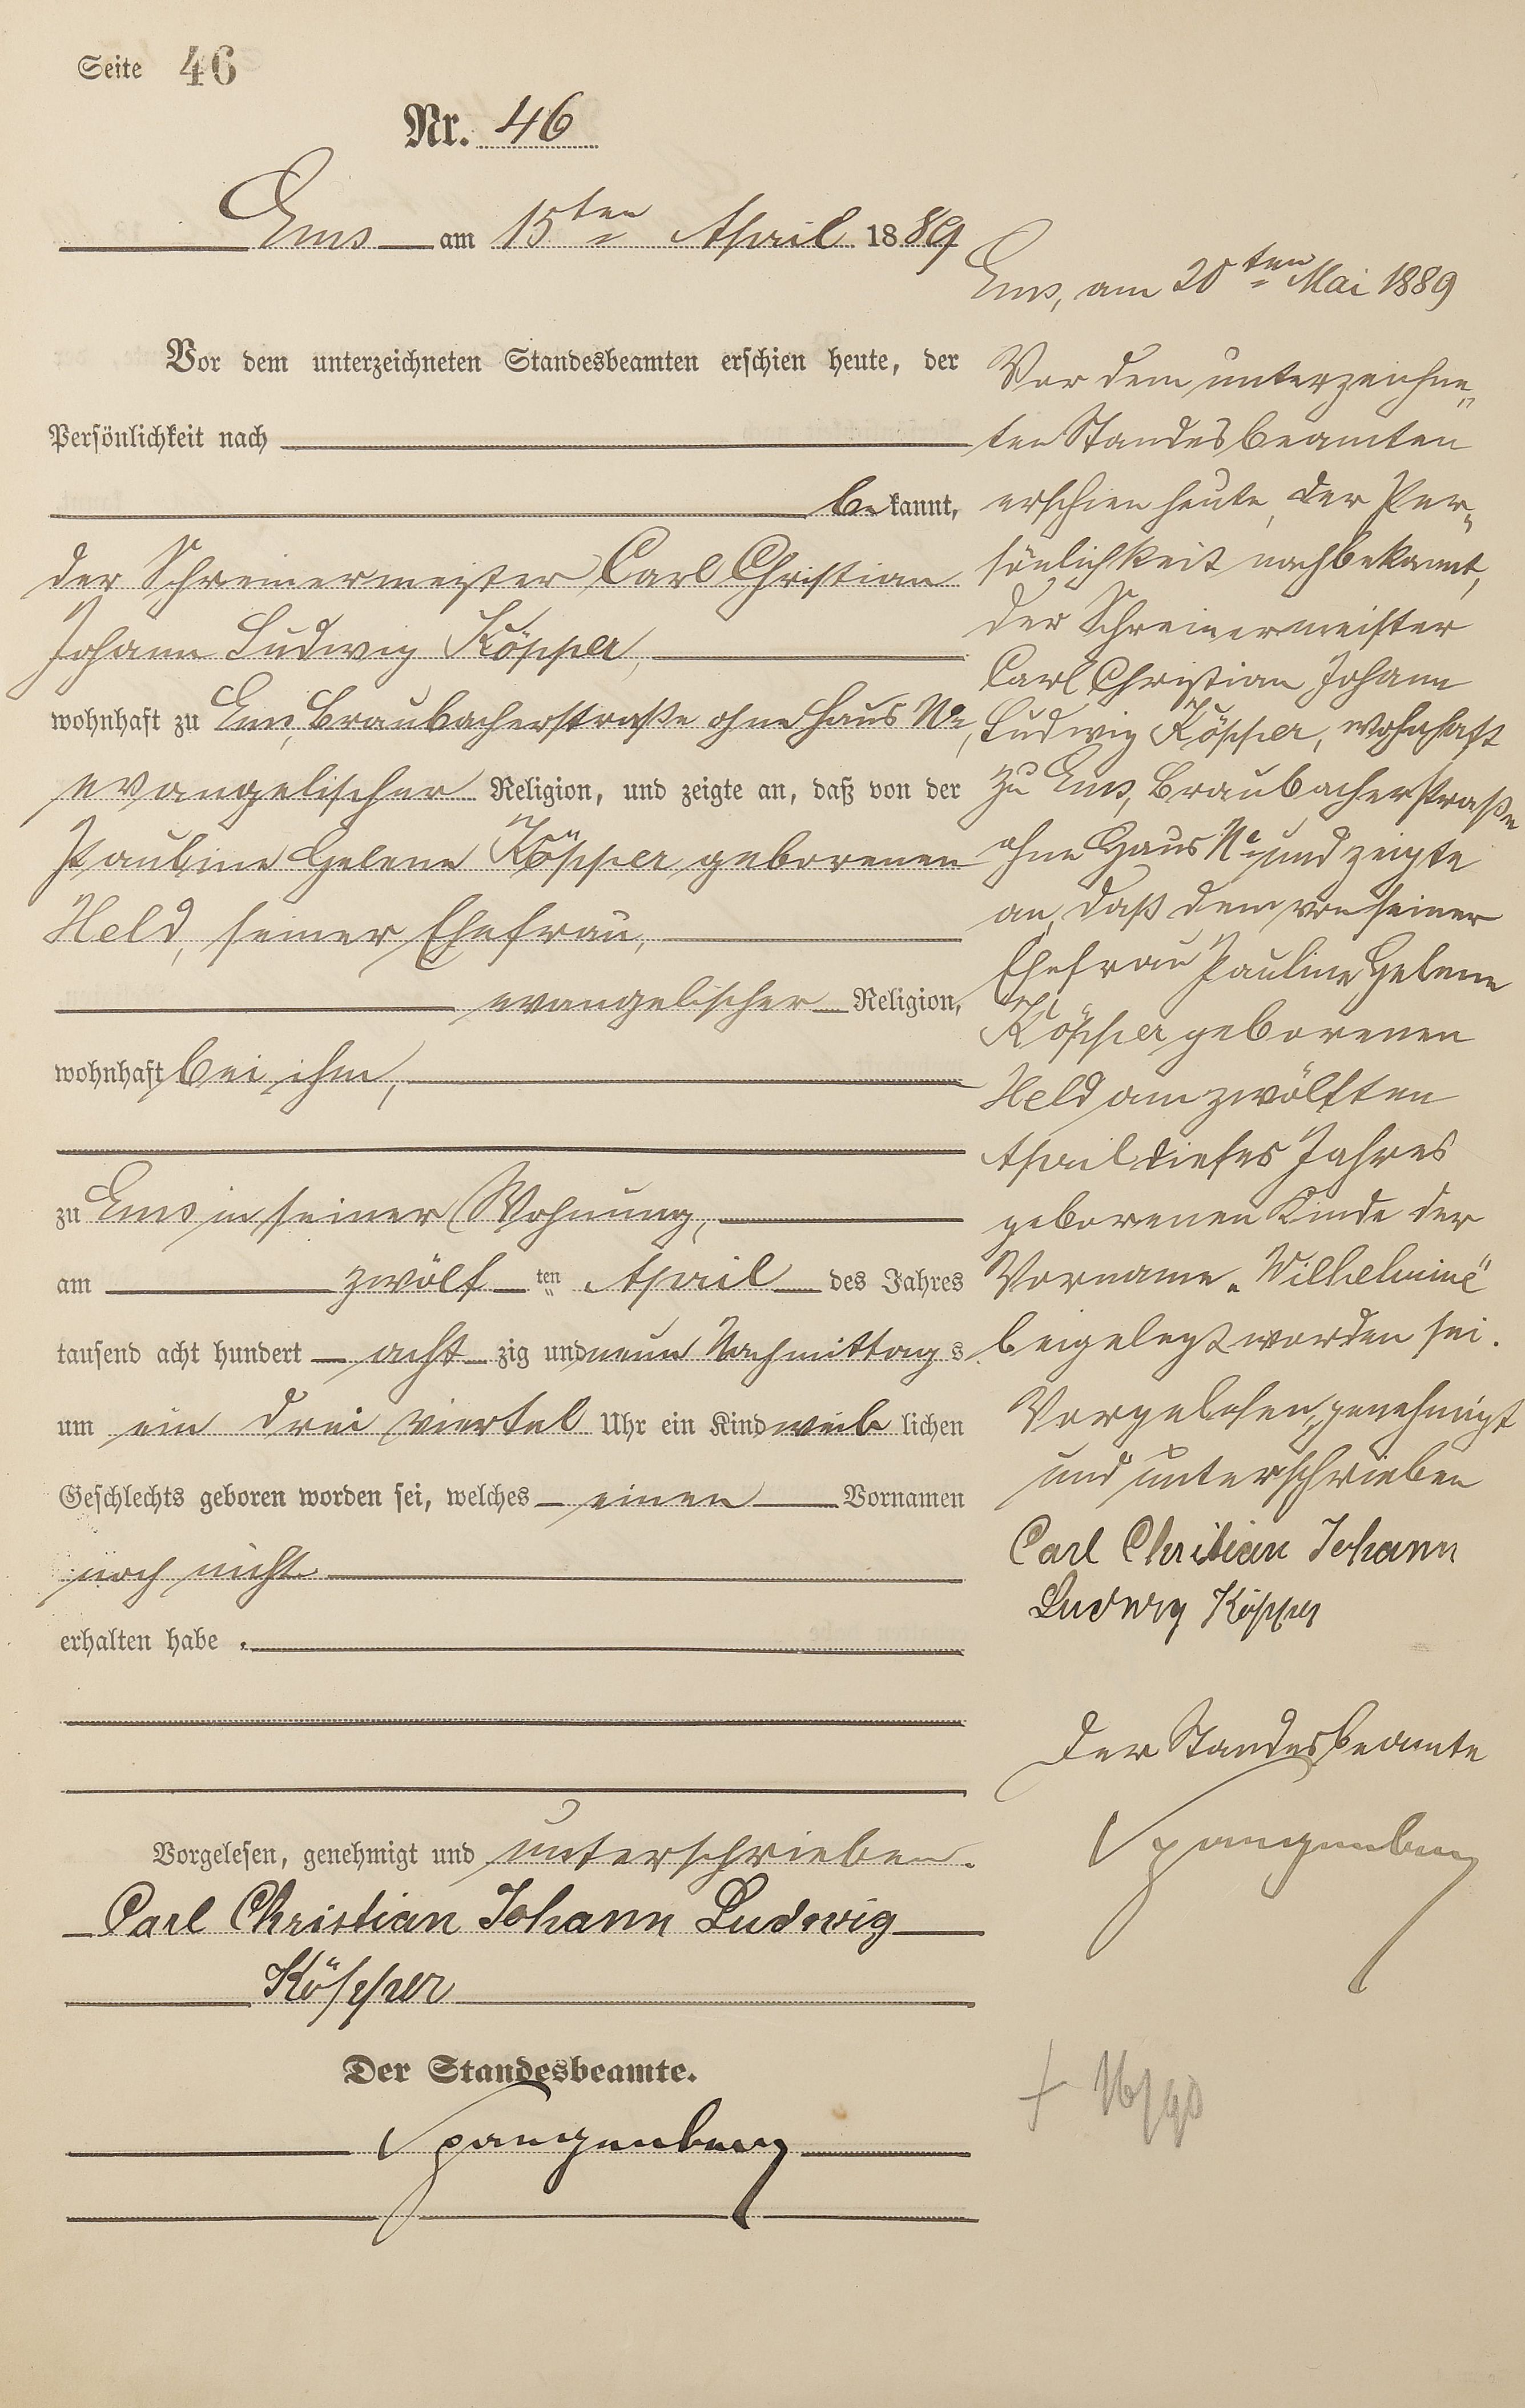 Seite 46
Nr. 46
Ems am 15ten April 1889
Vor dem unterzeichneten Standesbeamten erschien heute, der
Persönlichkeit nach
bekannt,
der Schreinermeister Carl Christian
Johann Ludwig Köpper,
wohnhaft zu Ems, Braubacherstraße ohne Haus No,
evangelischer Religion, und zeigte an, daß von der
Pauline Helene Köpper geborenen
Held, seiner Ehefrau,
evangelischer Religion,
wohnhaft bei ihm,
zu Ems in seiner Wohnung,
am zwölf ten April des Jahres
tausend acht hundert acht zig und neun Nachmittags
um ein drei viertel Uhr ein Kind weib lichen
Geschlechts geboren worden sei, welches einen Vornamen
noch nicht
erhalten habe.
Vorgelesen, genehmigt und unterschrieben.
Carl Christian Johann Ludwig
Köpper
Der Standesbeamte.
Spangenberg
Ems, am 20ten Mai 1889
Vor dem unterzeichne„
ten Standesbeamten
erschien heute, der Per„
sönlichkeit nach bekannt,
der Schreinermeister
Carl Christian Johann
Ludwig Köpper, wohnhaft
zu Ems, Braubacherstraße
ohne Haus No und zeigte
an, daß dem von seiner
Ehefrau Pauline Helene
Köpper geborenen
Held am zwölften
April dieses Jahres
geborenen Kinde der
Vorname „Wilhelmine"
beigelegt worden sei.
Vorgelesen, genehmigt
und unterschrieben
Carl Christian Johann
Ludwig Köpper
Der Standesbeamte
Spangenberg
† 16/90